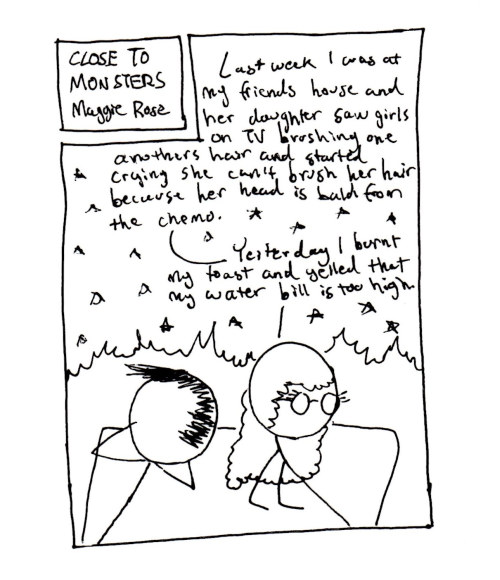 CLOSE TO
MONSTERS
Maggie Rose
Last week I was at
my friends house and
her daughter saw girls
on TV brushing one
anothers hair and started
crying she can't brush her hair
because her head is bald from
the chemo.
Yesterday I burnt
my toast and yelled that
my water bill is too high.